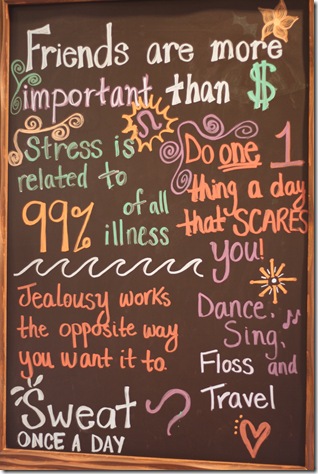 Friends are more
important than $
Stress is
related to
99% of all
illness
Do one 1
thing a day
that SCARES
you!
Jealousy works
the opposite way
you want it to.
Dance,
Sing,
Floss and
Travel
Sweat
ONCE A DAY